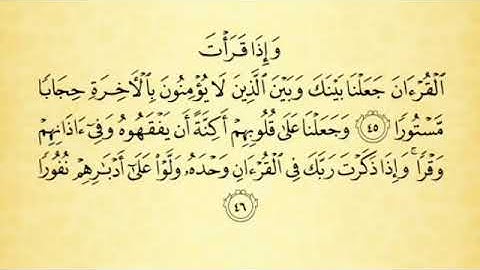 وَإِذَا قَرَأۡتَ
ٱلۡقُرۡءَانَ جَعَلۡنَا بَيۡنَكَ وَبَيۡنَ ٱلَّذِينَ لَا يُؤۡمِنُونَ بِٱلۡأٓخِرَةِ حِجَابٗا
مَّسۡتُورٗا ٤٥ وَجَعَلۡنَا عَلَىٰ قُلُوبِهِمۡ أَكِنَّةً أَن يَفۡقَهُوهُ وَفِيٓ ءَاذَانِهِمۡ
وَقۡرٗاۚ وَإِذَا ذَكَرۡتَ رَبَّكَ فِي ٱلۡقُرۡءَانِ وَحۡدَهُۥ وَلَّوۡاْ عَلَىٰٓ أَدۡبَٰرِهِمۡ نُفُورٗا
٤٦